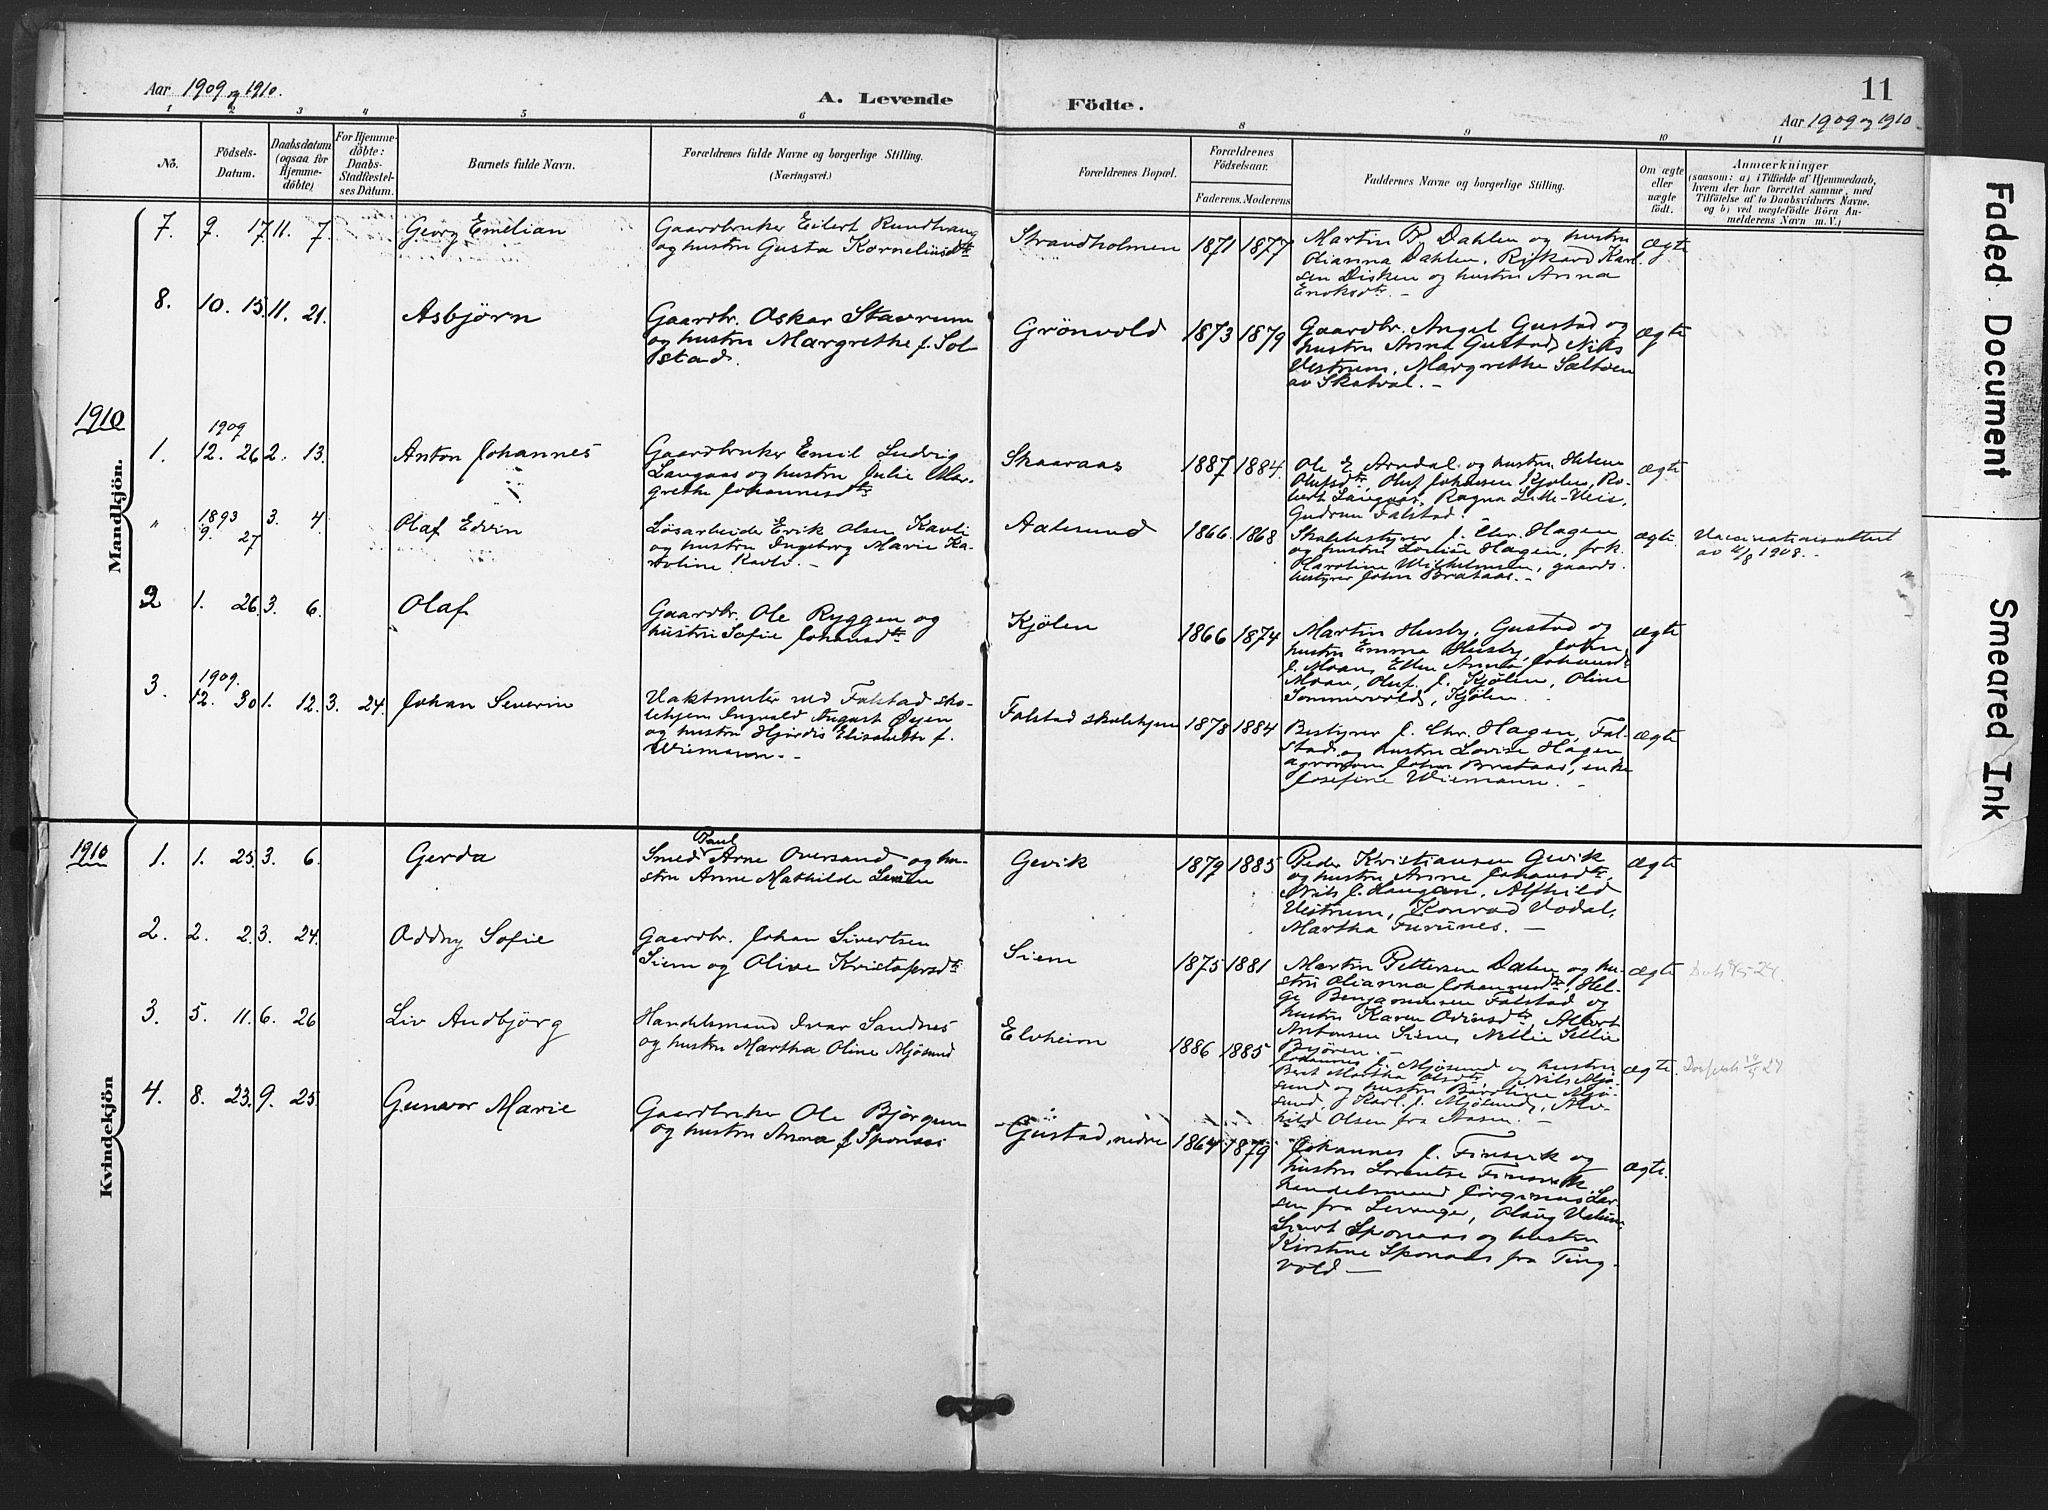 Aar 1909 og 1910.
A. Levende Födte.
11
Aar 1909 og 1910
1 2 3 4 5 6 8 9 10 11
No.
Födsels-Datum.
Daabsdatum (ogsaa for Hjemme-döbte)
For Hjemme-döbte: Daabs-Stadfæstel-ses Datum.
Barnets fulde Navn.
Forældrenes fulde Navne og borgerlige Stilling.
(Næringsvei.)
Forældrenes Bopæl.
Forældrenes Födselsaar.
Faderens. Moderens
Faddernes Navne og borgerlige Stilling.
Om ægte eller uægte födt.
Anmærkninger
(saasom: a) i Tilfælde af Hjemmedaab,
hvem der har forrettet samme, med
Tilföielse af to Daabsvidners Navne.
og b) ved uægtefödte Börn An-
melderens Navn m. V.)
Mandkjön.
7. 9. 17 11. 7. Georg Emilian
Gaardbruker Eilert Rundhaug
og hustru Gusta Korneliusdtr
Strandholmen 1871 1877
Martin B. Dahlen og hustru
Olianna Dahlen, Rikard Karl
sen Disken og hustru Anna
Enoksdtr. -
Ægte
8. 10. 15. 11. 21. Asbjörn
Gaardbr. Oskar Stavrum
og hustru Margrethe f. Sol
stad.
Grönvold 1873 1879
Gaardbr. Angel Gustad og
hustru Anna Gustad, Nils
Vestrum, Margrethe Saltven
av Skatval. -
ægte
1910
1. 1909
12. 26 2. 13. Anton Johannes
Gaardbruker Emil Ludvig
Langaas og hustru Julie Mar-
grethe Johannesdtr
Skaaraas 1887 1884.
Ole E. Arndal og hustru Helene
Olufsdtr, Oluf Johansen Kjølen, Ro-
bert Langaas, Ragna Lille-Veis,
Gudrun Falstad.
ægte
" 1893
9. 27 3. 4. Olaf Edvin
Løsarbeider Erik Olsen Kavli
og hustru Ingeborg Marie Ka-
roline Kavli. -
Aalesund 1866. 1868
Skolebestyrer J. Chr. Hagen
og hustru Lovise Hagen, frk.
Haroline Wilhelmsen, gaards
bestyrer John Brataas. -
ægte.
Vaccinationsattest
av 4/8 1908. -
2 1. 26 3. 6. Olaf
Gaardbr. Ole Ryggen og
hustru Sofie Johansdtr
Kjölen 1866 1874
Martin Husby, Gustad og
hustru Emma Husby, John
J. Moan, Ellen Anna Johansdtr
Moan, Oluf J. Kjølen, Oline
Sommervold, Kjølen. -
ægte
3. 1909.
12. 30 1. 12. 3. 24. Johan Severin
Vaktmester ved Falstad sko-
lehjem Ingvald August Øyen
og hustru Hjördis Elisabeth f.
Wiemann. -
Falstad skolehjem 1878 1884
Bestyrer J. Chr. Hagen, Fal-
stad og hustru Lovise Hagen,
agronom John Brataas, enke
Josefine Wiemann. -
ægte
Kvindekjön
1910
1. 1. 25. 3. 6. Gerda
Smed Paul Arne Oversand og hu-
stru Anne Mathilde
Gevik 1879 1885
Peder Kristiansen Gevik
og hustru Anne Johansdtr,
Nils J. Haugan, Alfhild
Vestrum, Konrad Vodal,
Martha Furunes. -
ægte
2. 2. 2. 3. 24. Oddny Sofie
Gaardbr. Johan Sivertsen
Siem og Olive Kristofersdtr
Siem 1875 1881
Martin Pettersen Dalen og hu-
stru Olianna Johannesdtr, Hel-
ge Benjaminsen Falstad og
hustru Karen Odinsdtr, Albert
Antonsen Siem, Nellie Sellie
Bjøren. -
ægte
3. 5. 11. 6. 26 Liv Audbjörg
Handelsmand Ivar Sandnes
og hustru Martha Oline Mjösund
Elvheim 1886 1885
Johannes J. Mjøsund og hustru
Berit Martha Olsdtr, Nils Mjø-
sund og hustru Baroline Mjø-
sund, og Karl J. Mjøsund, Alv-
hild Olsen fra Aasen. -
ægte.
4. 8. 23. 9. 25. Gunvor Marie
Gaardbruker Ole Björgum
og hustru Anna f. Sponaas
Gustad, nedre 1864 1879
Johannes J. Finsvik og
hustru Lorentse Finsvik,
handelsmand Jörginus Lar
sen fra Levanger, Olaug
Sivert Sponaas og hustru
Kirstine Sponaas fra Ting-
vold -
ægte.
Faded Document
Smeared Ink